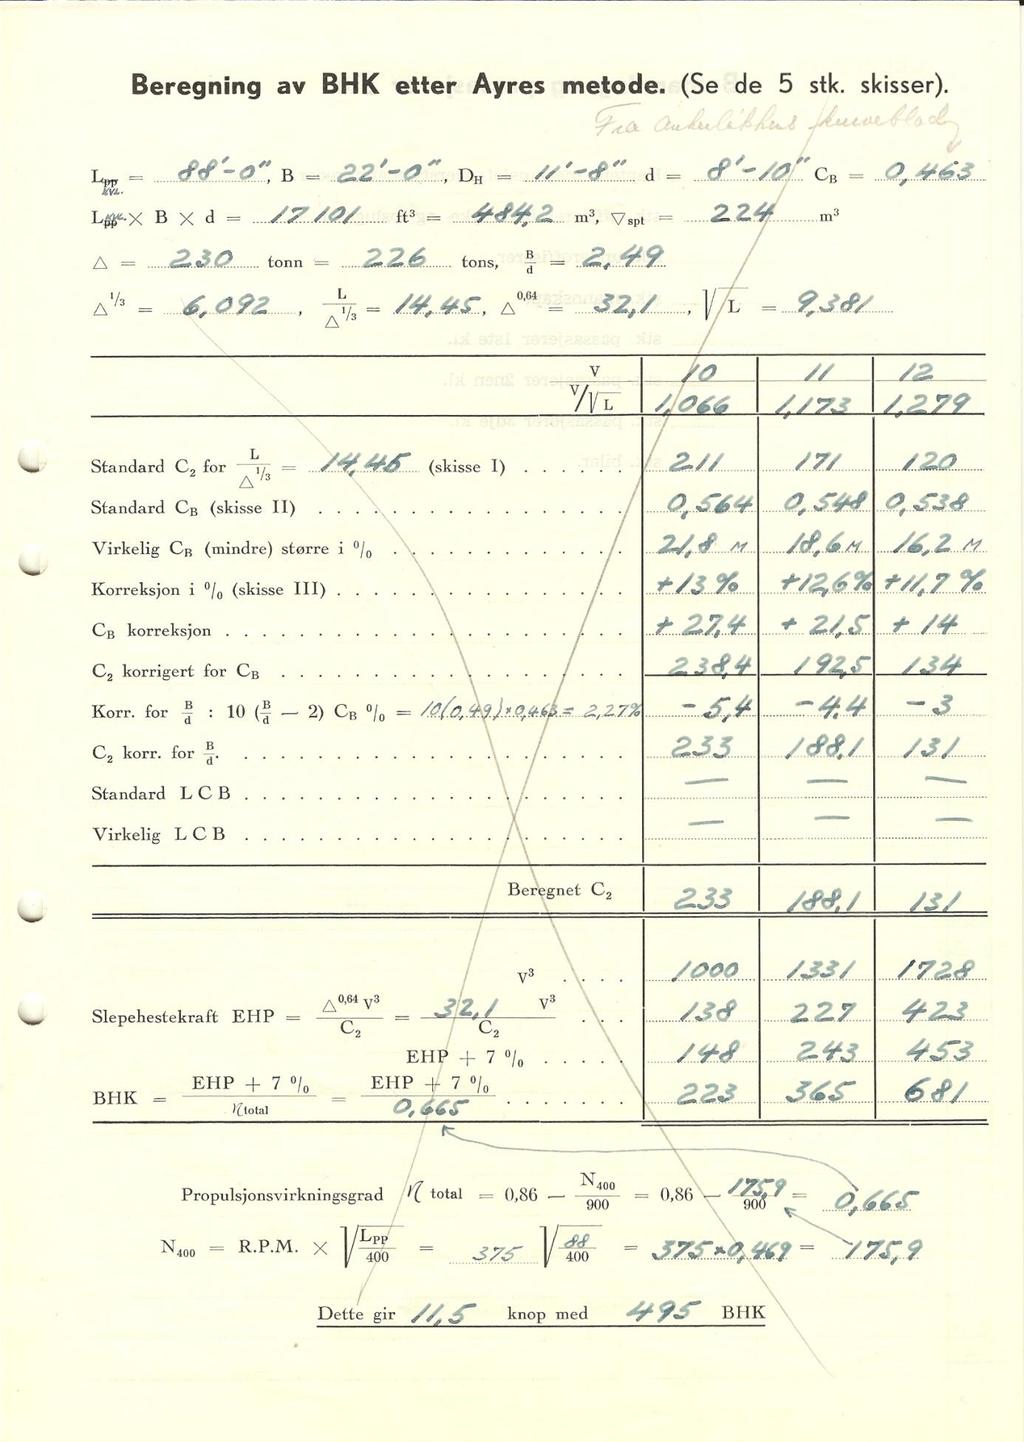 Beregning av BHK etter Ayres metode. (Se de 5 stk. skisser).
Fra
Lpp KVL. = 88'-0", B = 22'-0", DH = 11'-8" d = 8'-10" CB = 0,463
Lpp KVL. × B × d = 17101 ft³ = 484,2 m³, ▽spt = 224 m³
△ = 230 tonn = 226 tons, B/d = 2,49
△^1/3 = 6,092, L/△^1/3 = 14,45, △^0,64 = 32,1, √L = 9,381
V 10 11 12
V/√L 1,066 1,173 1,279
Standard C₂ for L/△^1/3 = 14,45 (skisse I) . . . . . 211 171 120
Standard CB (skisse II) . . . . . 0,564 0,548 0,538
Virkelig CB (mindre) større i % . . . . . 21,8 M 18,6 M 16,2 M
Korreksjon i % (skisse III) . . . . . +13 % +12,6% +11,7 %
CB korreksjon . . . . . + 27,4 + 21,5 + 14
C₂ korrigert for CB . . . . . 238,4 192,5 134
Korr. for B/d : 10 (B/d — 2) CB % = 10(0,49)×0,463 = 2,27% - 5,4 - 4,4 - 3
C₂ korr. for B/d. . . . . . 233 188,1 131
Standard L C B . . . . . — — —
Virkelig L C B . . . . . — — —
Beregnet C₂ 233 188,1 131
V³ . . . . 1000 1331 1728
Slepehestekraft EHP = △^0,64 V³/C₂ = 32,1 V³/C₂ . . . 138 227 423
EHP + 7 % . . . . . 148 243 453
BHK = EHP + 7 %/ηtotal = EHP + 7 %/0,665 . . . . . 223 365 681
Propulsjonsvirkningsgrad η total = 0,86 — N400/900 = 0,86 — 175,9/900 = 0,665
N400 = R.P.M. × √LPP/400 = 375 √88/400 = 375×0,469 = 175,9
Dette gir 11,5 knop med 495 BHK